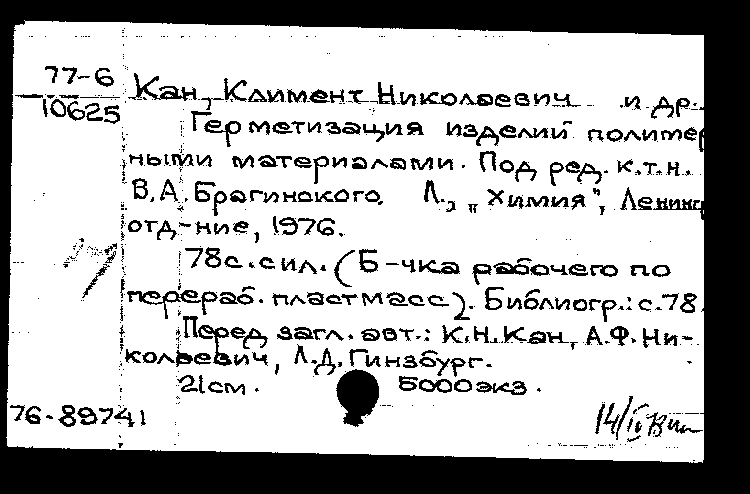 77-6
10625
Кан, Климент Николаевич и др.
Герметизация изделий полимер
ными материалами. Под ред. к.т.н.
В.А.Брагинского. Л., „Химия", Ленингр
отд-ние, 1976.
78с. с ил. (Б-чка рабочего по
перераб. пластмасс). Библиогр.: с.78.
Перед загл. авт.: К.Н.Кан, А.Ф.Ни-
колаевич, Л.Д.Гинзбург.
21см. 5000экз.
76-89741
14/IV